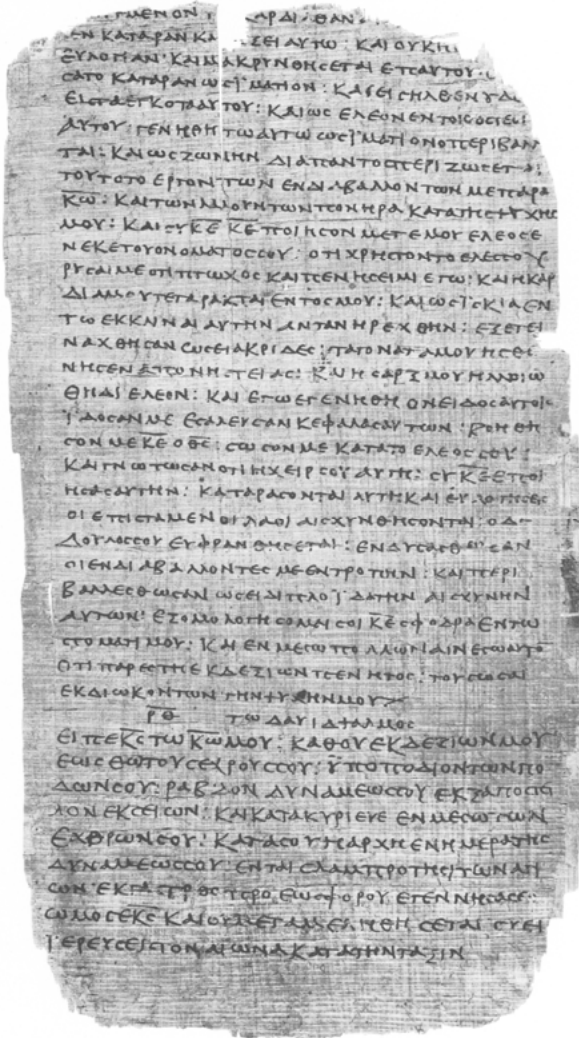 ΓΜΕΝΟΝ ΚΑΡΔΙ ΘΑΝ
ΕΝ ΚΑΤΑΡΑΝ ΚΑ ΖΕΙ ΑΥΤΩ : ΚΑΙ ΟΥΚ Η
ΕΥΛΟΓΙΑΝ ΚΑΙ ΜΑΚΡΥΝΘΗCΕΤΑΙ ΕΠ ΑΥΤΟΥ
CΑΤΟ ΚΑΤΑΡΑΝ ΩC ΪΜΑΤΙΟΝ : ΚΑΙ ΕΙCΗΛΘΕΝ ΥΔ
ΕΙC ΤΑ ΕΓΚΟΤΑ ΑΥΤΟΥ : ΚΑΙ ΩC ΕΛΕΟΝ ΕΝ ΤΟΙC
ΑΥΤΟΥ : ΓΕΝΗΘΗΤΩ ΑΥΤΩ ΩC ΪΜΑΤΙΟΝ Ο ΠΕΡΙΒΑΛΛ
ΤΑΙ : ΚΑΙ ΩC ΖΩΝΗΝ ΔΙΑ ΠΑΝΤΟC ΠΕΡΙΖΩCΕΤΑΙ
ΤΟΥΤΟ ΤΟ ΕΡΓΟΝ ΤΩΝ ΕΝΔΙΑΒΑΛΛΟΝΤΩΝ ΜΕ ΠΑΡΑ
Κ̅Ω̅ : ΚΑΙ ΤΩΝ ΛΛΟΥΝΤΩΝ ΠΟΝΗΡΑ ΚΑΤΑ ΤΗC ΨΥΧΗC
ΜΟΥ : ΚΑΙ CΥ Κ̅Ε̅ Κ̅Ε̅ ΠΟΙΗCΟΝ ΜΕΤ ΕΜΟΥ ΕΛΕΟC Ε
ΝΕΚΕ ΤΟΥ ΟΝΟΜΑΤΟC CΟΥ : ΟΤΙ ΧΡΗCΤΟΝ ΤΟ ΕΛΕΟC CΟΥ
ΡΥCΑΙ ΜΕ ΟΤΙ ΠΤΩΧΟC ΚΑΙ ΠΕΝΗC ΕΙΜΙ ΕΓΩ : ΚΑΙ Η ΚΑΡ
ΔΙΑ ΜΟΥ ΤΕΤΑΡΑΚΤΑΙ ΕΝΤΟC ΜΟΥ : ΚΑΙ ΩC Ϊ CΚΙΑ ΕΝ
ΤΩ ΕΚΚΛΙΝΑΙ ΑΥΤΗΝ ΑΝΤΑΝΗΡΕΧΘΗΝ : ΕΞΕΤΕΙ
ΝΑΧΘΗCΑΝ ΩCΕΙ ΑΚΡΙΔΕC : ΤΑ ΓΟΝΑΤΑ ΜΟΥ ΗCΘΕ
ΝΗCΕΝ ΑΠΟ ΝΗCΤΕΙΑC : Κ Η CΑΡΞ ΜΟΥ ΗΛΛΟΙΩ
ΘΗ ΔΙ ΕΛΕΟΝ : ΚΑΙ ΕΓΩ ΕΓΕΝΗΘΗ ΟΝΕΙΔΟC ΑΥΤΟΙC
ΪΔΟCΑΝ ΜΕ ΕCΑΛΕΥCΑΝ ΚΕΦΑΛΑC ΑΥΤΩΝ : ΒΟΗΘΗ
CΟΝ ΜΕ Κ̅Ε̅ Ο Θ̅C̅ : CΩCΟΝ ΜΕ ΚΑΤΑ ΤΟ ΕΛΕΟC CΟΥ :
ΚΑΙ ΓΝΩΤΩCΑΝ ΟΤΙ Η ΧΕΙΡ CΟΥ ΑΥΤΗ : CΥ Κ̅Ε̅ ΕΠΟΙ
ΗCΑC ΑΥΤΗΝ : ΚΑΤΑΡΑCΟΝΤΑΙ ΑΥΤΗ ΚΑΙ ΕΥΛΟΓΗCΕΙC
ΟΙ ΕΠΙCΤΑΜΕΝΟΙ ΛΑΟΙ ΑΙCΧΥΝΘΗCΟΝΤΑΙ : Ο ΔΕ
ΔΟΥΛΟC CΟΥ ΕΥΦΡΑΝΘΗCΕΤΑΙ : ΕΝΔΥCΑCΘΩCΑΝ
ΟΙ ΕΝΔΙΑΒΑΛΛΟΝΤΕC ΜΕ ΕΝΤΡΟΠΗΝ : ΚΑΙ ΠΕΡΙ
ΒΑΛΛΕCΘΩCΑΝ ΩCΕΙ ΔΙΠΛΟΪΔΑ ΤΗΝ ΑΙCΧΥΝΗΝ
ΑΥΤΩΝ : ΕΞΟΜΟΛΟΓΗCΟΜΑΙ CΟΙ Κ̅Ε̅ CΦΟΔΡΑ ΕΝ ΤΩ
CΤΟΜΑΤΙ ΜΟΥ : ΚΑΙ ΕΝ ΜΕCΩ ΠΟΛΛΩΝ ΑΙΝΕCΩ ΑΥΤΟ̅
ΟΤΙ ΠΑΡΕCΤΗ ΕΚ ΔΕΞΙΩΝ ΠΕΝΗΤΟC : ΤΟΥ CΩCΑΙ
ΕΚ ΔΙΩΚΟΝΤΩΝ ΤΗΝ ΨΥΧΗΝ ΜΟΥ
Ρ̅Θ̅ ΤΩ ΔΑΥΙΔ ΨΑΛΜΟC
ΕΙΠΕ Κ̅C̅ ΤΩ Κ̅Ω̅ ΜΟΥ : ΚΑΘΟΥ ΕΚ ΔΕΞΙΩΝ ΜΟΥ
ΕΩC ΘΩ ΤΟΥC ΕΧΡΟΥC CΟΥ : ΫΠΟΠΟΔΙΟΝ ΤΩΝ ΠΟ
ΔΩΝ CΟΥ : ΡΑΒΔΟΝ ΔΥΝΑΜΕΩC CΟΥ ΕΞΑΠΟCΤΕ
ΛΟΝ ΕΚ CΕΙΩΝ : ΚΑΙ ΚΑΤΑΚΥΡΙΕΥΕ ΕΝ ΜΕCΩ ΤΩΝ
ΕΧΘΡΩΝ CΟΥ : ΚΑΤΑ CΟΥ Η ΑΡΧΗ ΕΝ ΗΜΕΡΑ ΤΗC
ΔΥΝΑΜΕΩC CΟΥ : ΕΝ ΤΑΙC ΛΑΜΠΡΟΤΗCΙ ΤΩΝ ΑΓΙ
ΩΝ : ΕΚ ΓΑCΤΡΟC ΠΡΟ ΕΩCΦΟΡΟΥ ΕΓΕΝΝΗCΑ CΕ :
ΩΜΟCΕ Κ̅C̅ ΚΑΙ ΟΥ ΜΕΤΑΜΕΛΗΘΗCΕΤΑΙ CΥ ΕΙ
ΪΕΡΕΥC ΕΙC ΤΟΝ ΑΙΩΝΑ ΚΑΤΑ ΤΗΝ ΤΑΞΙΝ